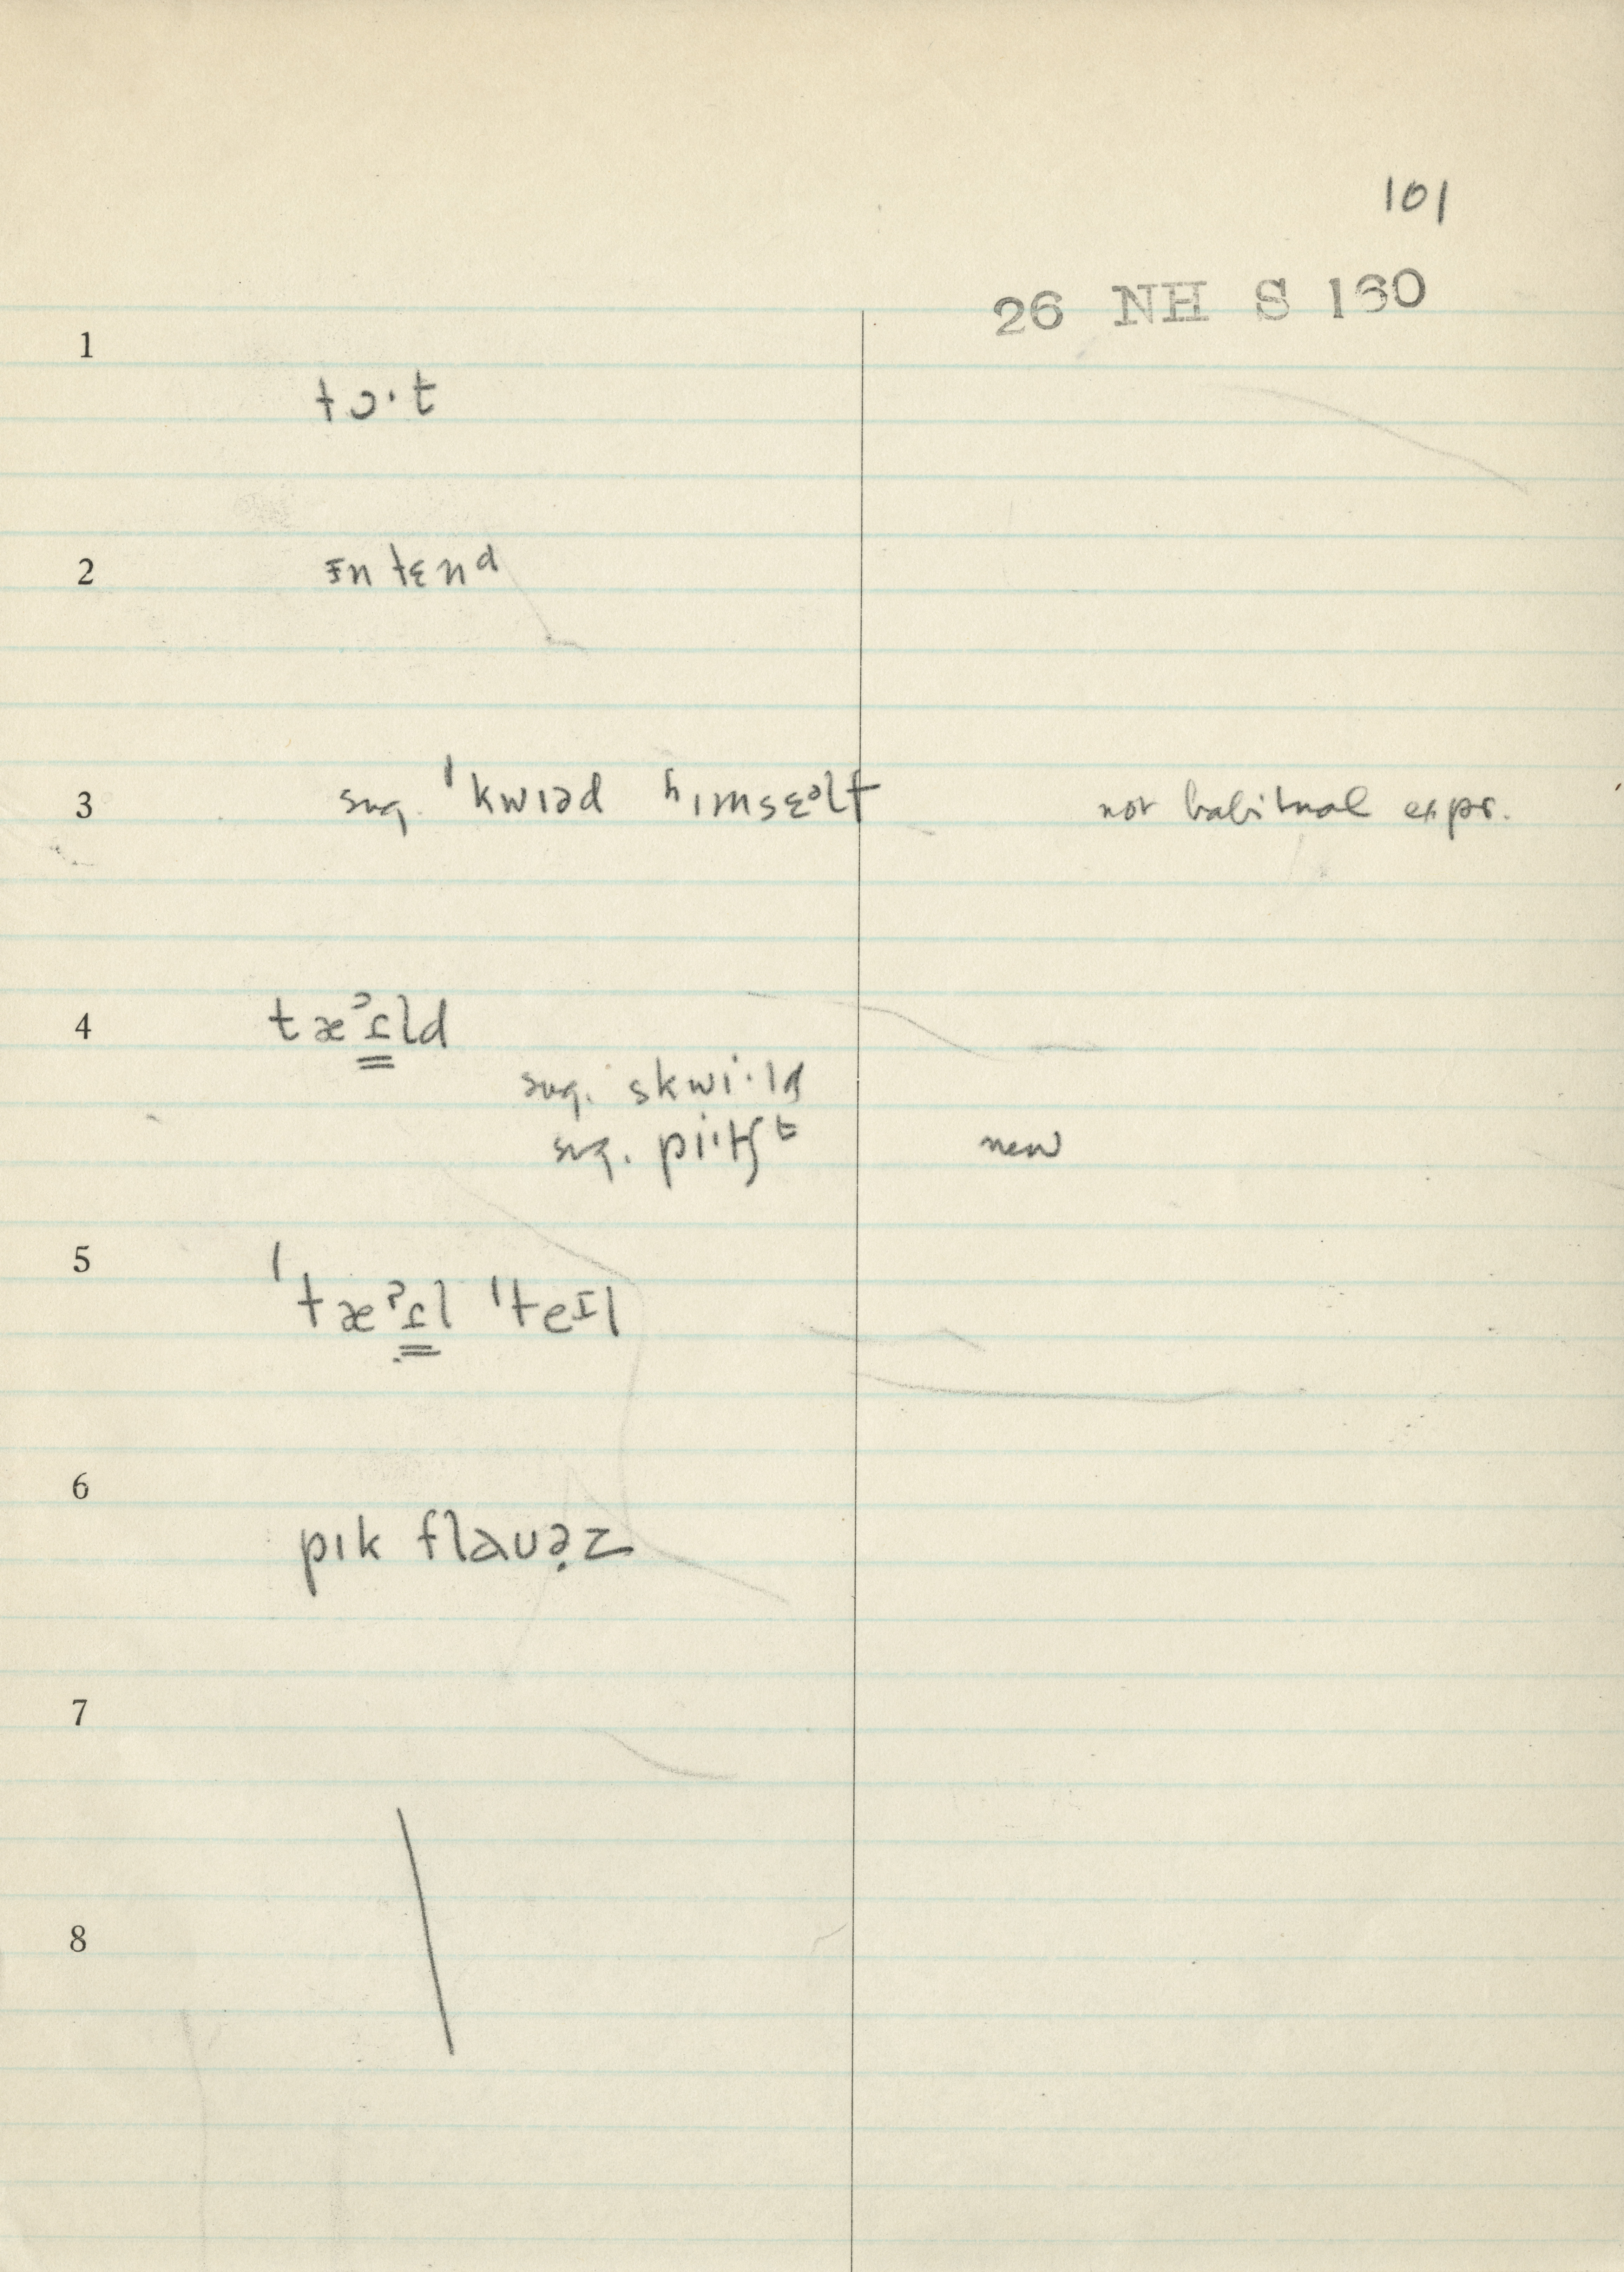 101
26 NH S 160
1
tɔ·t
2
ɪntɛnd
3 sug. ˈkwɪəd hɪmsɛəlf not habitual expr.
4 tæᵊɪ̳ld
sug. skwi·ld
sug. pi·tʃt new
5
ˈtæˀɪ̳l ˈteɪl
6
pɪk flaʊə̣z
7
8